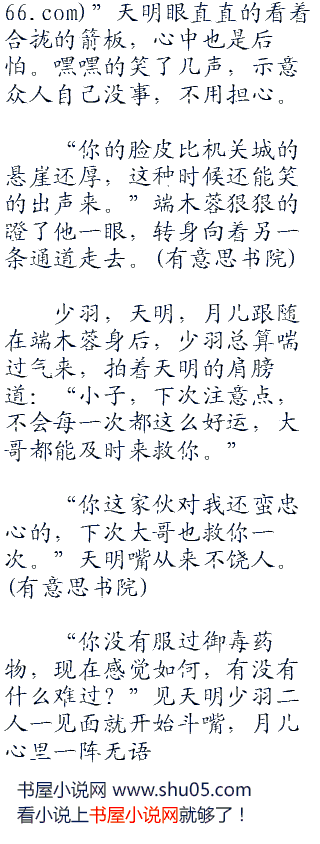 66.com)”天明眼直直的看着
合拢的箭板，心中也是后
怕。嘿嘿的笑了几声，示意
众人自己没事，不用担心。
“你的脸皮比机关城的
悬崖还厚，这种时候还能笑
的出声来。”端木蓉狠狠的
瞪了他一眼，转身向着另一
条通道走去。(有意思书院)
少羽，天明，月儿跟随
在端木蓉身后，少羽总算喘
过气来，拍着天明的肩膀
道：“小子，下次注意点，
不会每一次都这么好运，大
哥都能及时来救你。”
“你这家伙对我还蛮忠
心的，下次大哥也救你一
次。”天明嘴从来不饶人。
(有意思书院)
“你没有服过御毒药
物，现在感觉如何，有没有
什么难过？”见天明少羽二
人一见面就开始斗嘴，月儿
心里一阵无语
书屋小说网 www.shu05.com
看小说上书屋小说网就够了！